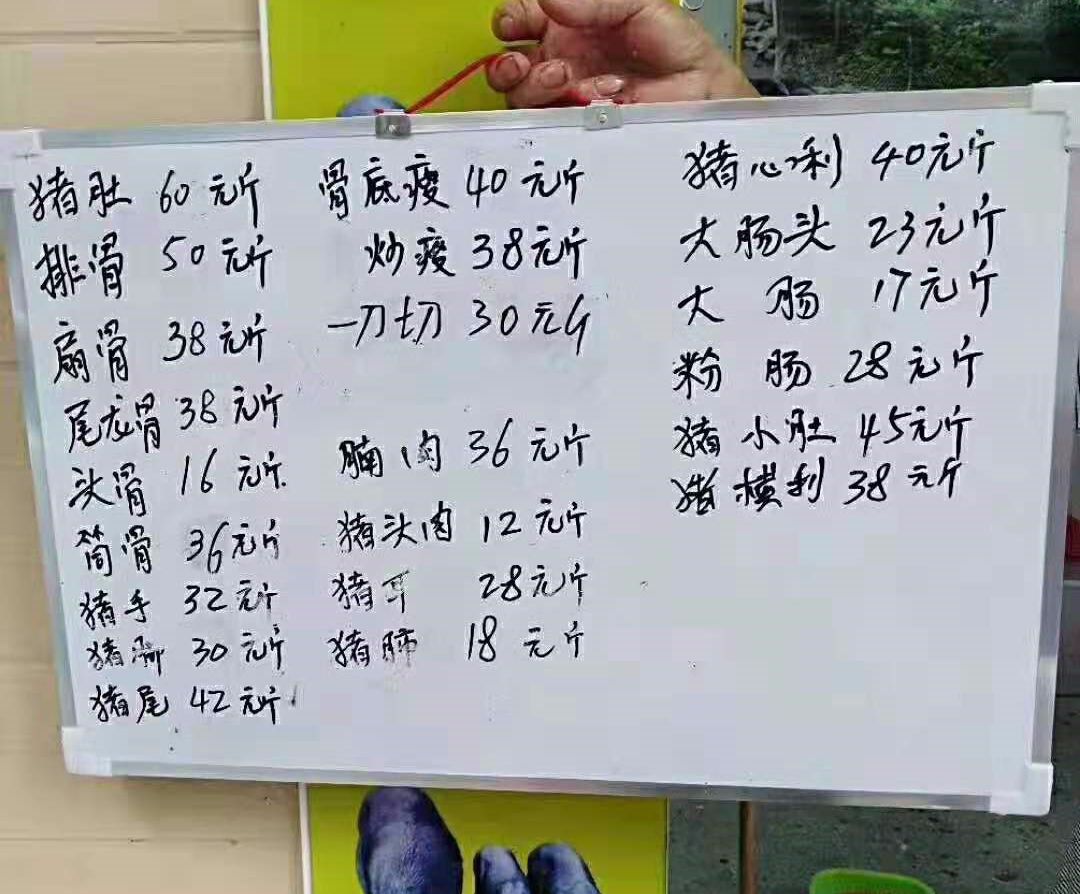 猪肚 60元斤
排骨 50元斤
扇骨 38元斤
尾龙骨 38元斤
头骨 16元斤
筒骨 36元斤
猪手 32元斤
猪脚 30元斤
猪尾 42元斤
骨底瘦 40元斤
炒瘦 38元斤
一刀切 30元斤
腩肉 36元斤
猪头肉 12元斤
猪耳 28元斤
猪肺 18元斤
猪心利 40元斤
大肠头 23元斤
大肠 17元斤
粉肠 28元斤
猪小肚 45元斤
猪横利 38元斤